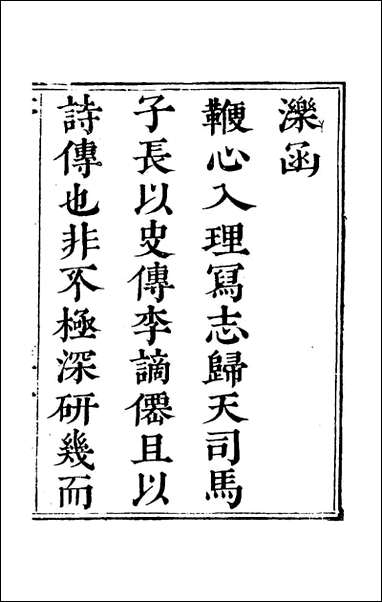 濼函
鞭心入理寫志歸天司馬
子長以史傳李謫僊且以
詩傳也非不極深研幾而